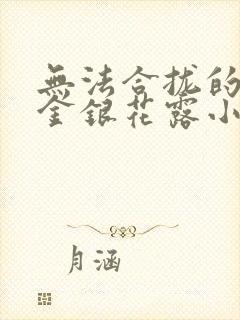 無法合拢的
金银花露小
月涵